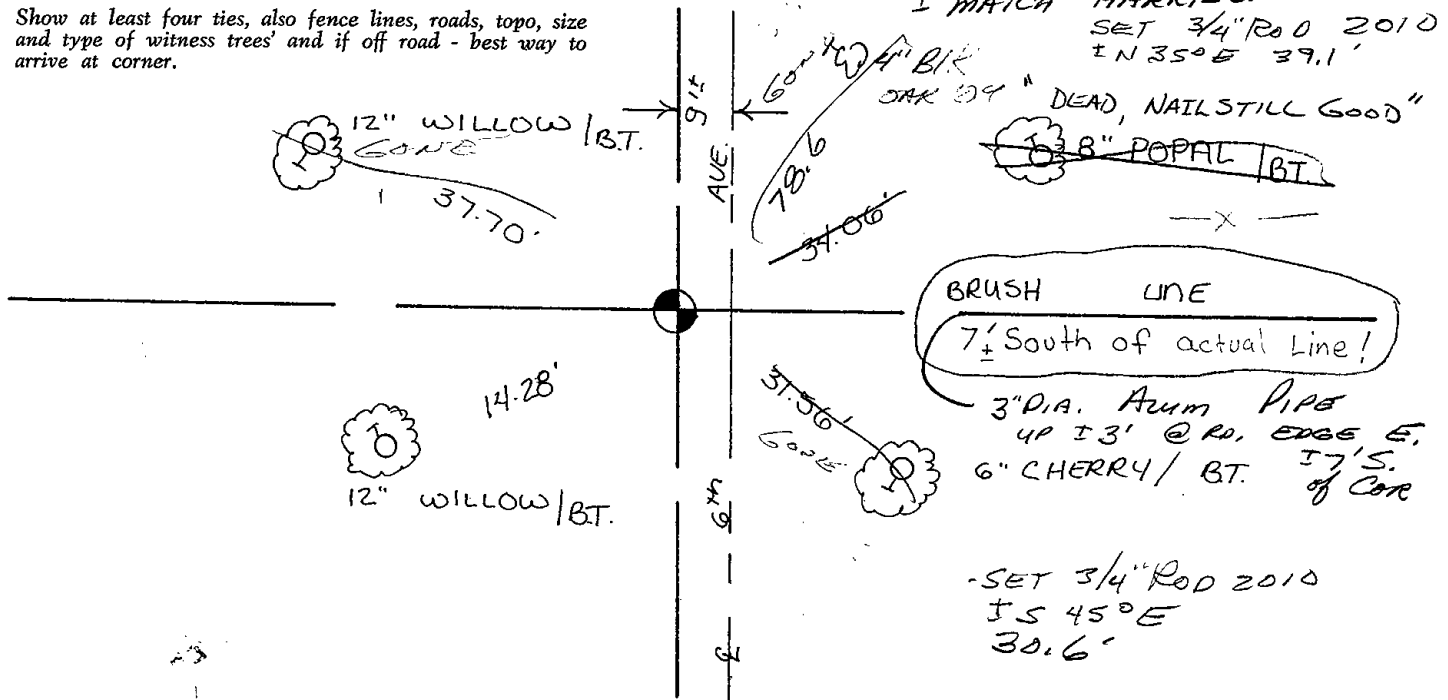 Show at least four ties, also fence lines, roads, topo, size
and type of witness trees' and if off road - best way to
arrive at corner.
± MATCH
SET 3/4" ROD 2010
± N 35° E 39.1'
12" WILLOW/BT.
GONE
37.70'
9'±
AVE.
78.6
4" BLK
OAK '04
" DEAD, NAIL STILL GOOD"
8" POPAL/BT.
34.06'
—X—
BRUSH LINE
7'± South of actual Line!
3" DIA. ALUM PIPE
UP ± 3' @ RD. EDGE E.
± 7' S.
of COR
14.28'
12" WILLOW/BT.
31.56'
GONE
6" CHERRY/BT.
6th
℄
-SET 3/4" ROD 2010
± S 45° E
30.6'